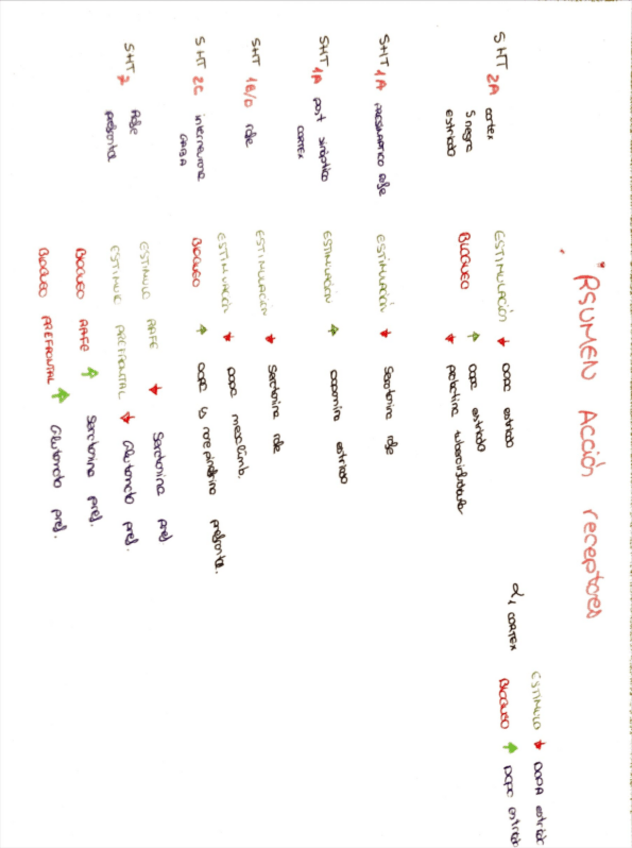 RSUMEN Acción receptores
5HT 2A cortex
S. negra
estriado
ESTIMULACIÓN ↓ dopa estriado
BLOQUEO ↑ dopa estriado
↓ prolactina tuberoinfundibular
α1 CORTEX
ESTIMULO ↓ DOPA estriado
BLOQUEO ↑ DOPA estriado
5HT 1A PRESINAPTICO rafe
ESTIMULACIÓN ↓ Serotonina rafe
5HT 1A post sináptico
CORTEX
ESTIMULACIÓN ↑ dopamina estriado
5HT 1B/D rafe
ESTIMULACION ↓ Serotonina rafe
5HT 2C interneurona
GABA
ESTIMULACION ↓ dopa mesolimb.
BLOQUEO ↑ dopa norepinefrina prefronta.
5HT 7 Rafe
prefrontal
ESTIMULO RAFE ↓ Serotonina pref
ESTIMULO PREFRONTAL ↓ Glutamato pref.
BLOQUEO RAFE ↑ Serotonina pref.
BLOQUEO PREFRONTAL ↑ Glutamato pref.